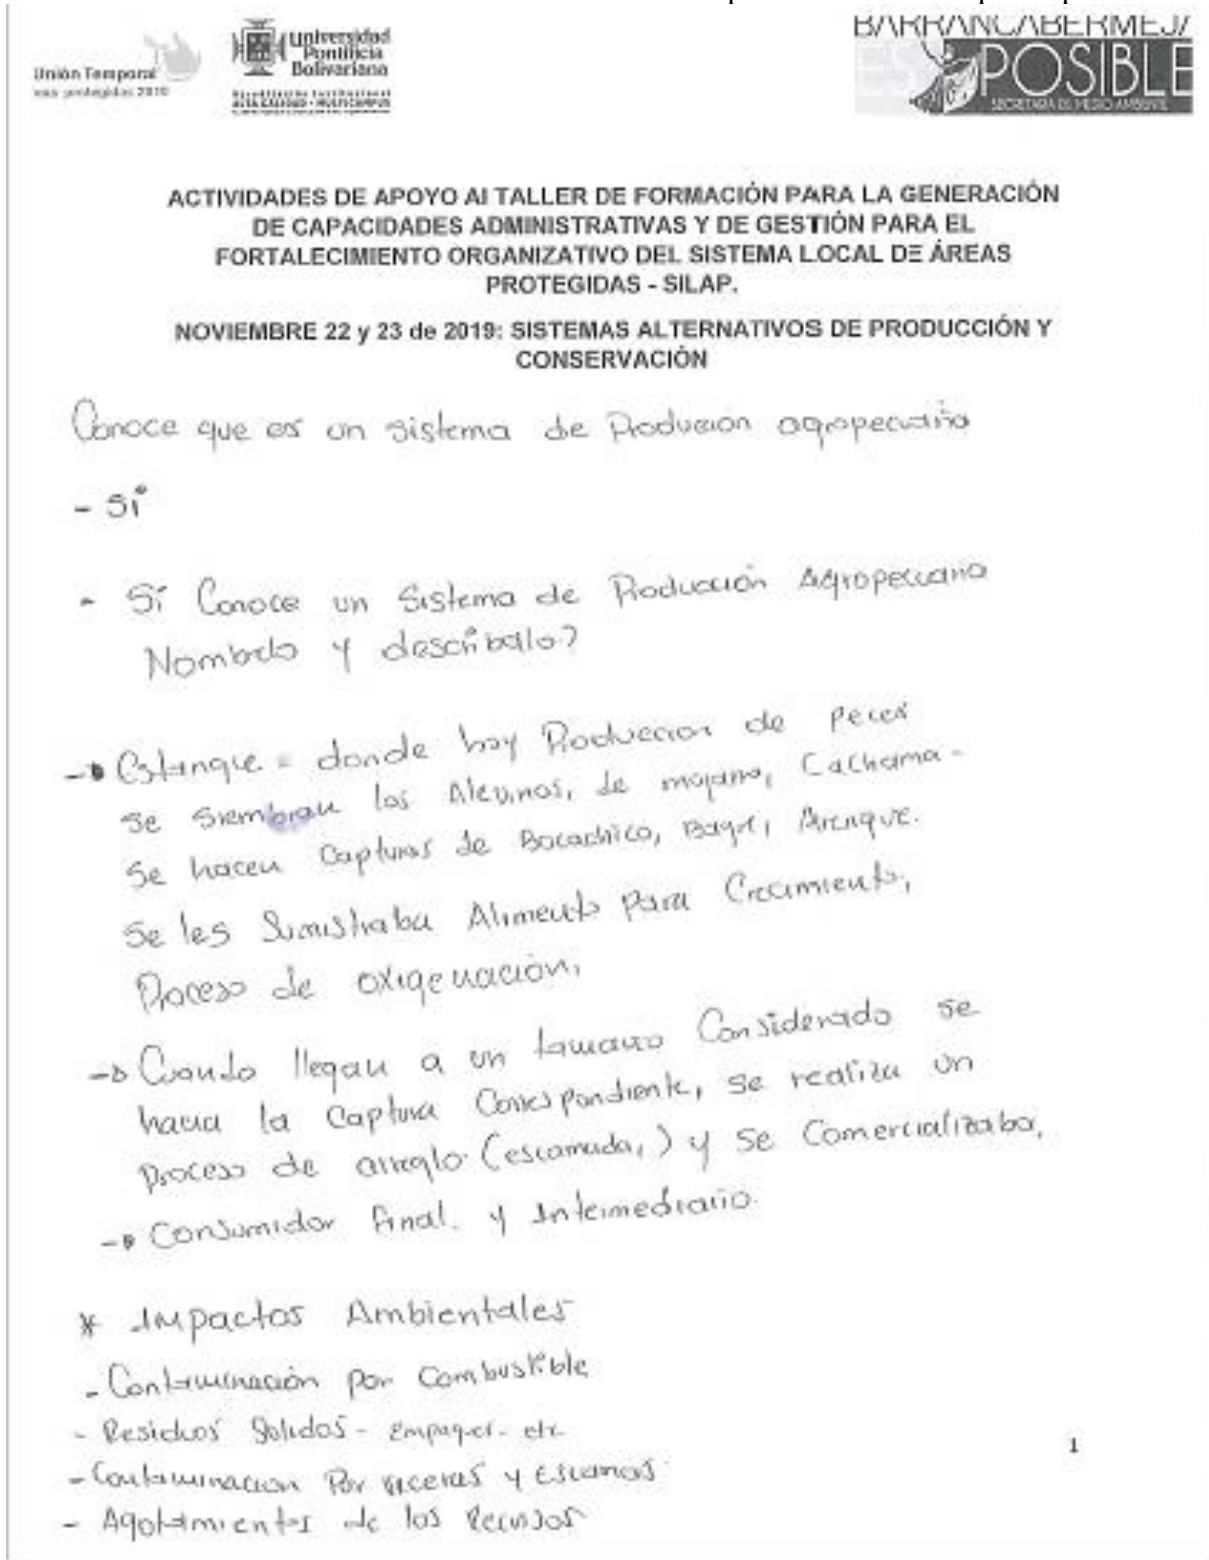 Unión Temporal
Universidad
Pontificia
Bolivariana
BARRANCABERMEJA
ES POSIBLE
SECRETARÍA DE MEDIO AMBIENTE
ACTIVIDADES DE APOYO Al TALLER DE FORMACIÓN PARA LA GENERACIÓN
DE CAPACIDADES ADMINISTRATIVAS Y DE GESTIÓN PARA EL
FORTALECIMIENTO ORGANIZATIVO DEL SISTEMA LOCAL DE ÁREAS
PROTEGIDAS - SILAP.
NOVIEMBRE 22 y 23 de 2019: SISTEMAS ALTERNATIVOS DE PRODUCCIÓN Y
CONSERVACIÓN
Conoce que es un sistema de Producion agropecuario
- Si
- Si Conoce un Sistema de Producción Agropecuario
Nombrelo y describalo?
→ Estanque = donde hay Produccion de peces
se siembran los Alevinos, de mojarra, Cachama -
Se hacen Capturas de Bocachico, Bagre, Arenque.
Se les Sumistraba Alimento Para Crecimiento,
Proceso de oxigenación,
→ Cuando llegan a un tamano Considerado se
hacia la Captura Correspondiente, se realiza un
proceso de arreglo (escamada,) y se Comercializaba,
→ Consumidor final. y Intermediario.
* Impactos Ambientales
- Contaminación por Combustible
- Residuos Solidos - Empaques - etc
- Contaminacion Por viceras y Escamas
- Agotamientos de los Recursos
1